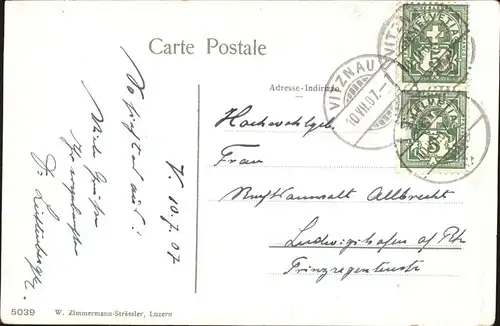 Carte Postale
Adresse-Indirizzo
HELVETIA
5
VITZNAU
10.VII.07.-
HELVETIA
5
V. 10.7.07
So sieht es
aus!
Viele Grüße
Hochwohlgeb.
Frau
Rechtsanwalt Albrecht
Ludwigshafen a/ Rh
Prinzregentenstr
5039
W. Zimmermann-Strässler, Luzern